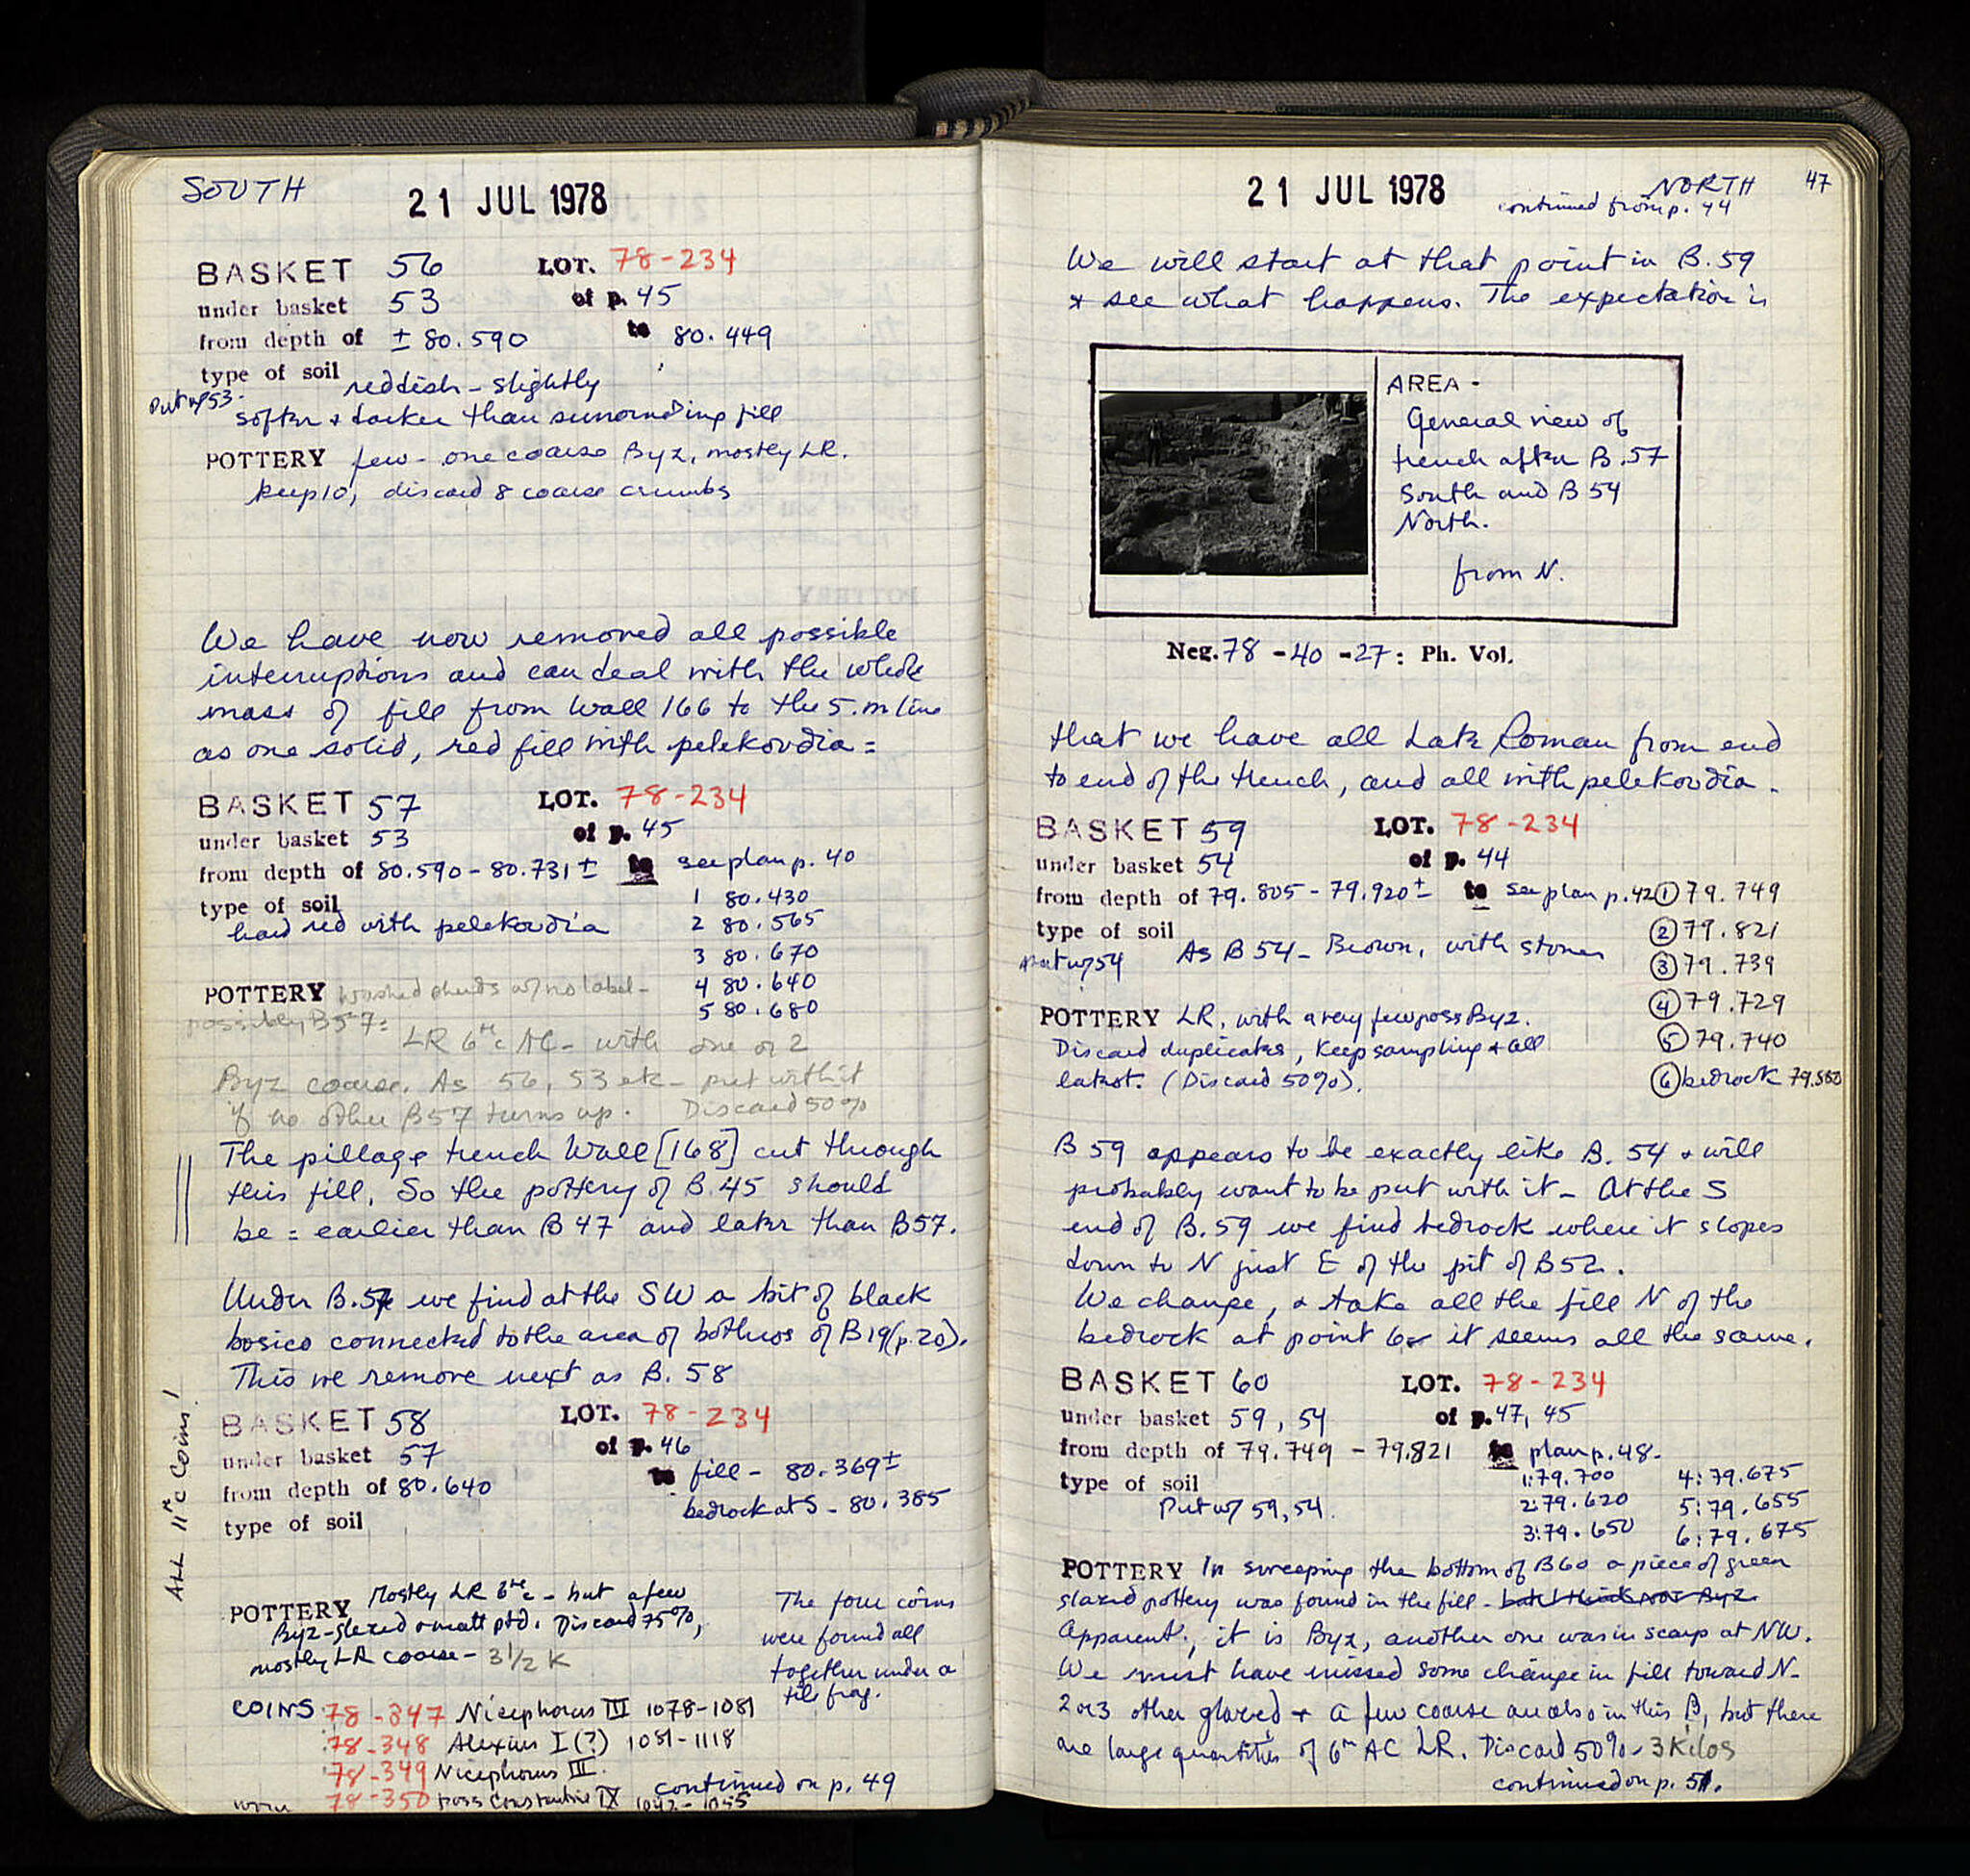 SOUTH
21 JUL 1978
BASKET 56 LOT. 78-234
under basket 53 of p. 45
from depth of ± 80.590 to 80.449
type of soil reddish - slightly
Put w/ 53.
softer & darker than surrounding fill
POTTERY few - one coarse Byz, mostly LR.
keep 10, discard 8 coarse crumbs
We have now removed all possible
interruptions and can deal with the whole
mass of fill from Wall 166 to the 5. m line
as one solid, red fill with pelekoudia =
BASKET 57 LOT. 78-234
under basket 53 of p. 45
from depth of 80.590 - 80.731 ± to see plan p. 40
type of soil 1 80.430
hard red with pelekoudia 2 80.565
3 80.670
4 80.640
5 80.680
POTTERY Washed sherds w/ no label -
possibly B57:
LR 6th c AC - with one or 2
Byz coarse. As 56, 53 etc - put with it
if no other B57 turns up. Discard 50%
The pillage trench Wall [168] cut through
this fill, So the pottery of B.45 should
be = earlier than B47 and later than B57.
Under B.57 we find at the SW a bit of black
bosico connected to the area of bothros of B19 (p.20).
This we remove next as B. 58
BASKET 58 LOT. 78-234
under basket 57 of p. 46
from depth of 80.640 to fill - 80.369 ±
bedrock at S - 80.385
type of soil
ALL 11th c Coins!
POTTERY Mostly LR 6th c - but a few
Byz-glazed & matt ptd. Discard 75%,
mostly LR coarse - 3 1/2 K
The four coins
were found all
together under a
tile frag.
COINS 78-347 Nicephorus III 1078-1081
78-348 Alexius I (?) 1081-1118
78-349 Nicephorus III.
worn 78-350 poss Constantine IX 1042-1055
continued on p. 49
21 JUL 1978
NORTH 47
continued from p. 44
We will start at that point in B.59
& see what happens. The expectation is
AREA -
General view of
trench after B.57
South and B 54
North.
from N.
Neg. 78 - 40 - 27: Ph. Vol.
that we have all Late Roman from end
to end of the trench, and all with pelekoudia.
BASKET 59 LOT. 78-234
under basket 54 of p. 44
from depth of 79.805 - 79.920 ± to see plan p. 42 ① 79.749
type of soil ② 79.821
Put w/ 54 As B 54 - Brown, with stones ③ 79.739
④ 79.729
⑤ 79.740
⑥ bedrock 79.580
POTTERY LR, with a very few poss Byz.
Discard duplicates, Keep sampling & all
latest. (Discard 50%).
B 59 appears to be exactly like B. 54 & will
probably want to be put with it - At the S
end of B.59 we find bedrock where it slopes
down to N just E of the pit of B52.
We change, & take all the fill N of the
bedrock at point 6 it seems all the same.
BASKET 60 LOT. 78-234
under basket 59, 54 of p. 47, 45
from depth of 79.749 - 79.821 to plan p. 48 -
type of soil 1: 79.700 4: 79.675
Put w/ 59, 54. 2: 79.620 5: 79.655
3: 79.650 6: 79.675
POTTERY In sweeping the bottom of B60 a piece of green
glazed pottery was found in the fill - but I think not Byz.
Apparent., it is Byz, another one was in scarp at NW.
We must have missed some change in fill toward N -
2 or 3 other glazed + a few coarse are also in this B, but there
are large quantities of 6th AC LR. Discard 50% - 3 Kilos
continued on p. 51.